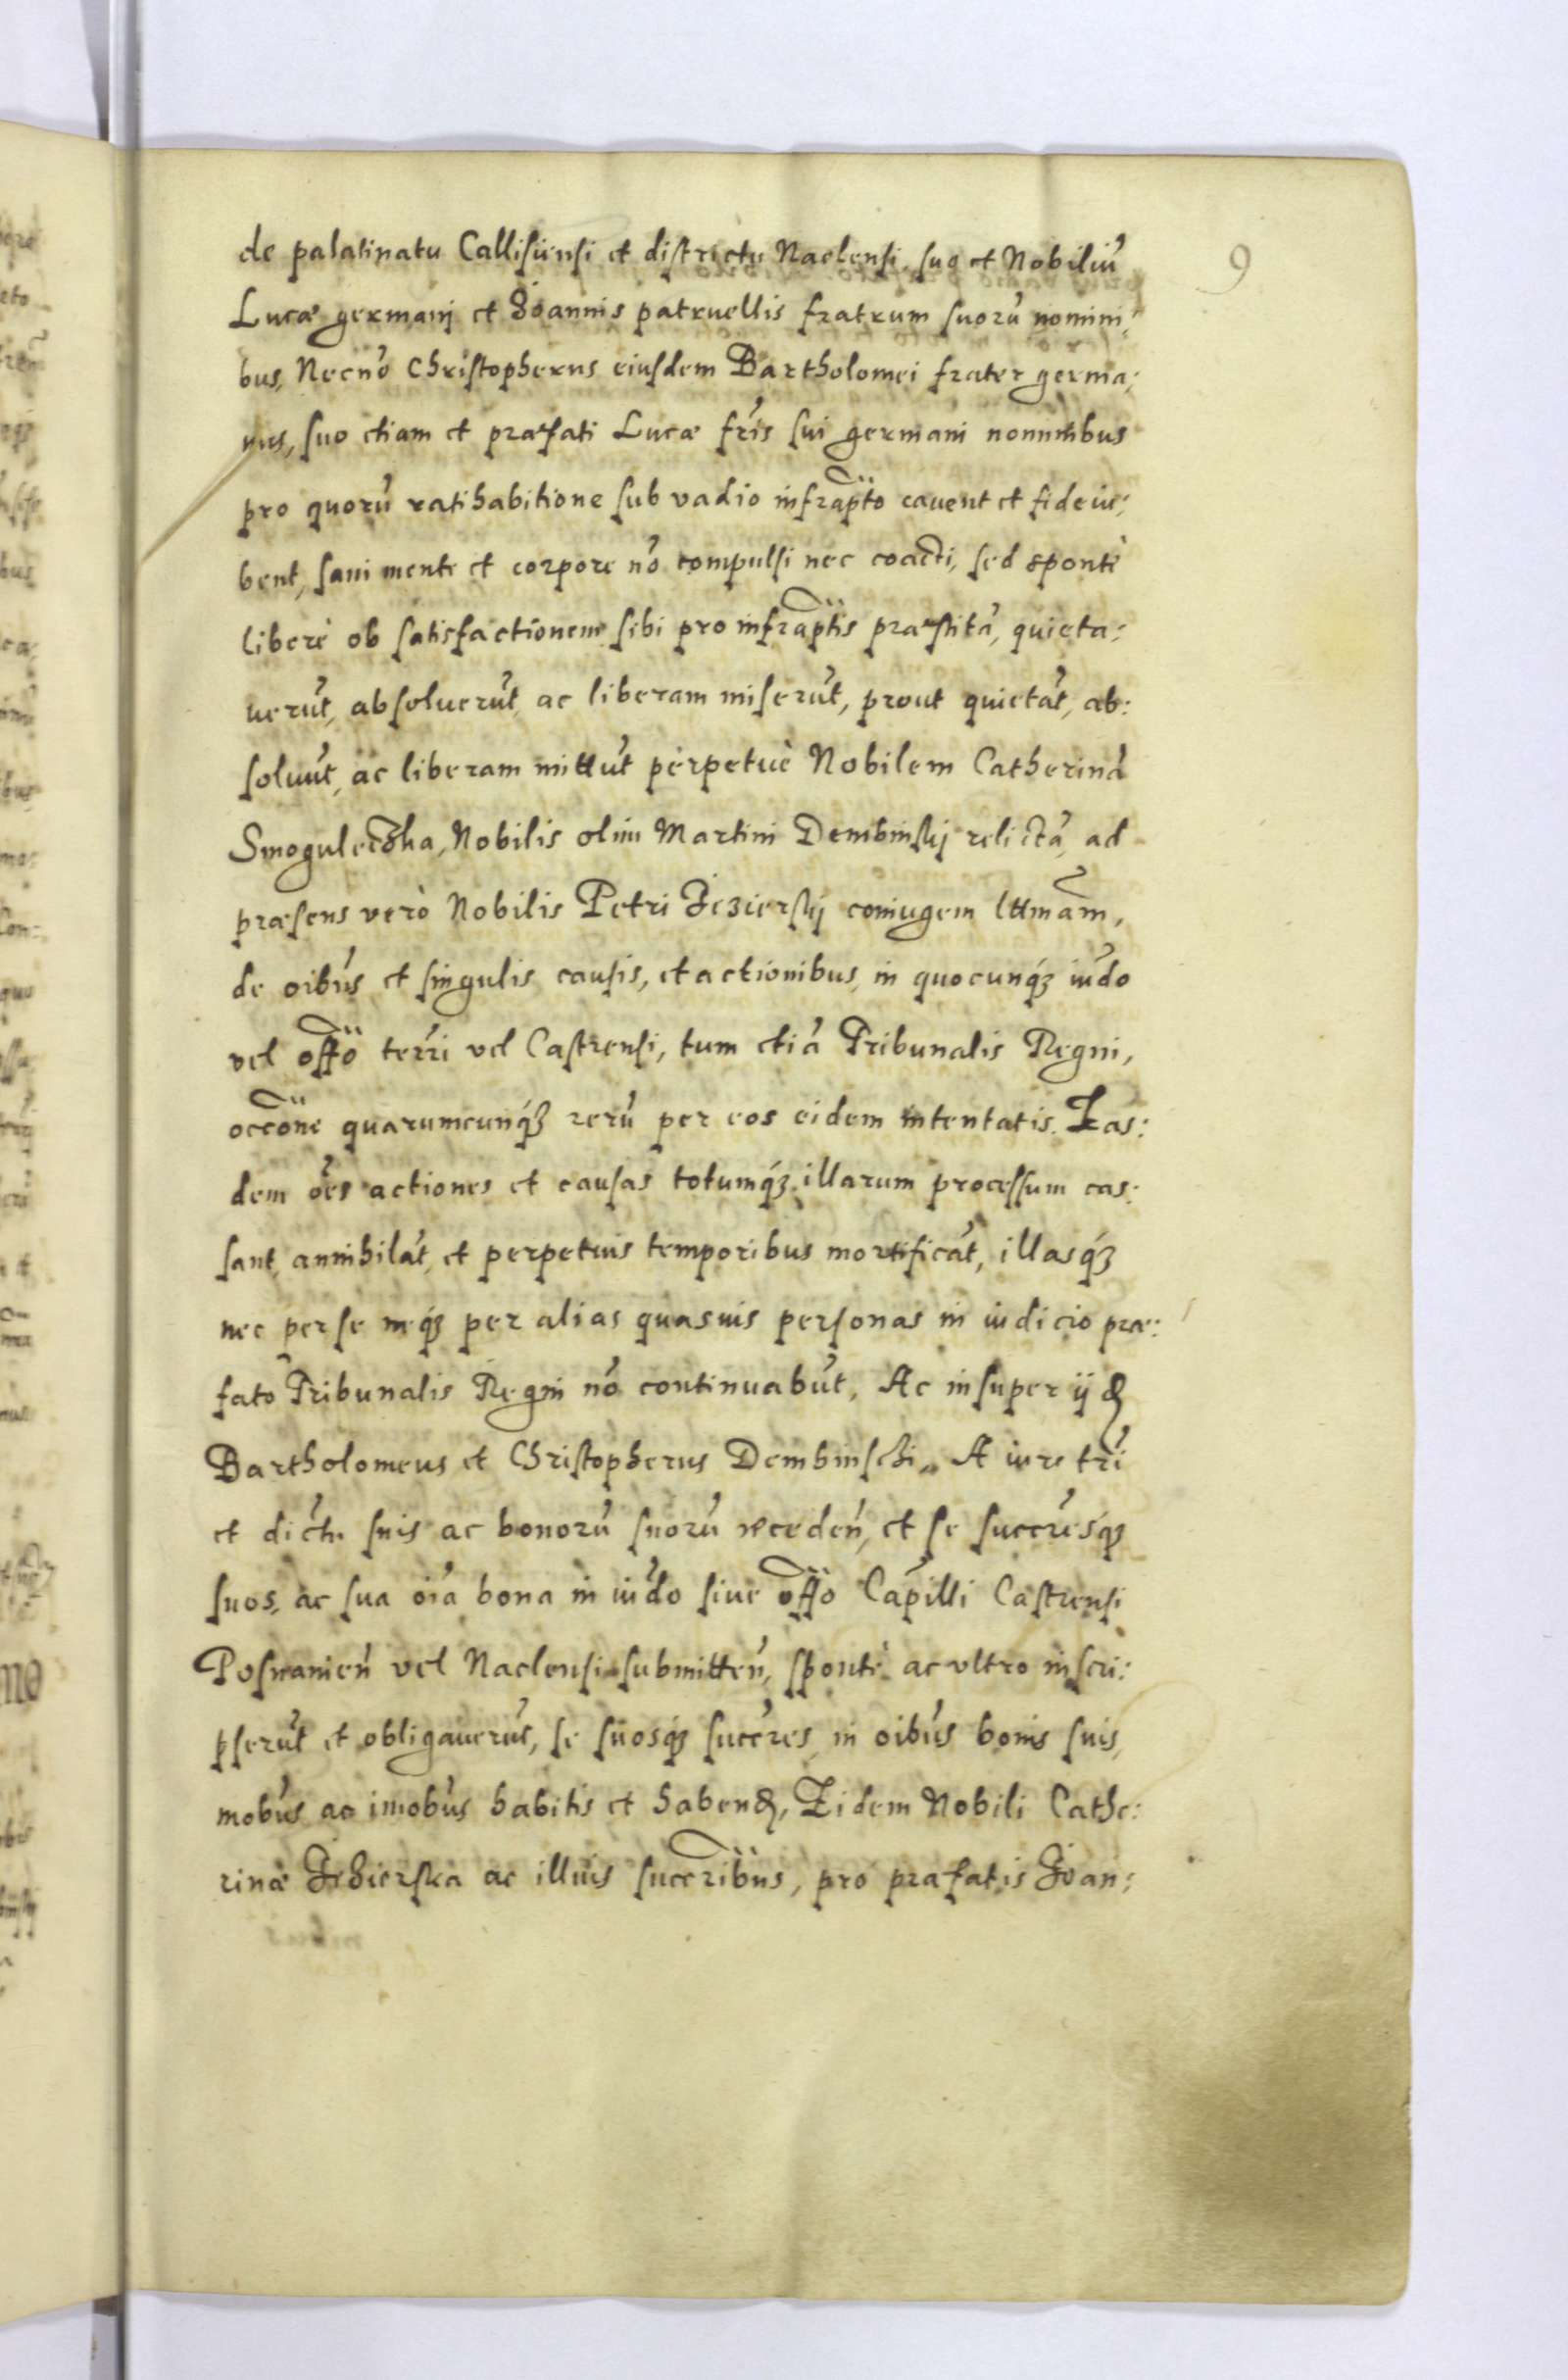 9
de palatinatu Callisiensi et districtu Naclensi, suo et Nobiliũ
Lucæ germanj et Joannis patruellis fratrum suorũ nomini:
bus, Necnõ Christopherus eiusdem Bartholomei frater germa:
nus, suo etiam et præfati Lucæ fr̃is sui germani nominibus
pro quorũ ratihabitione sub vadio infrap̃to cauent et fideiu:
bent, sani mente et corpore nõ compulsi nec coacti, sed spontè
liberè ob satisfactionem sibi pro infrap̃tis præstitã, quieta:
uerũt, absoluerũt, ac liberam miserũt, prout quietãt, ab:
soluũt, ac liberam mittũt perpetuè Nobilem Catherinã
Smoguleczka, Nobilis olim Martini Dembinskj relictã, ad
præsens verò Nobilis Petri Jezierskj coniugem lttmam̃,
de oib̃us et singulis causis, et actionibus, in quocunq́ꝫ iud̃o
vel offõ terr̃i vel Castrensi, tum etiã Tribunalis Regni,
occõne quarumcunq́ꝫ rerũ per eos eidem intentatis. Eas:
dem oẽs actiones et causas totumq́ꝫ illarum processum cas:
sant, annihilãt, et perpetuis temporibus mortificãt, illasq́ꝫ
nec per se neq́ꝫ per alias quasuis personas in iudicio præ:
fato Tribunalis Regni nõ continuabũt, Ac insuper ijd
Bartholomeus et Christopherus Dembinschi, A iure tr̃i
et dictu suis ac bonorũ suorũ receden̄, et se succr̃esq́ꝫ
suos, ac sua oĩa bona in iud̃o siue offõ Capĩlli Castrensi
Posnanien̄ vel Naclensi submitten̄, spontè ac vltro inscri:
pserũt et obligauerũt, se suosq́ꝫ succr̃es, in oib̃us bonis suis,
mob̃us ac im̃ob̃us habitis et habend, Eidem Nobili Cathe:
rinæ Jezierska ac illius succrib̃us, pro præfatis Joan: